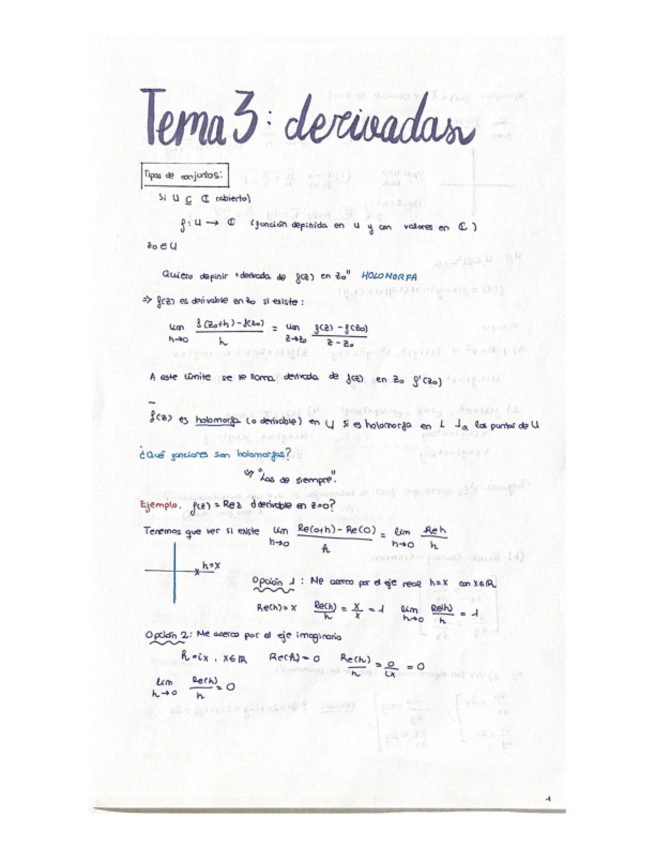 Tema 3: derivadas
Tipos de conjuntos:
Si U ⊆ ℂ (abierto)
f: U → ℂ (función definida en U y con valores en ℂ)
z₀ ∈ U
Quiero definir "derivada de f(z) en z₀" HOLOMORFA
⇒ f(z) es derivable en z₀ si existe:
lim h→0 (f(z₀+h) - f(z₀))/h = lim z→z₀ (f(z) - f(z₀))/(z - z₀)
A este límite se le llama derivada de f(z) en z₀ f'(z₀)
f(z) es holomorfa (o derivable) en U si es holomorfa en los puntos de U
¿Qué funciones son holomorfas?
"Las de siempre".
Ejemplo. f(z) = Re z ¿derivable en z=0?
Tenemos que ver si existe lim h→0 (Re(0+h) - Re(0))/h = lim h→0 Re h/h
h=x
Opción 1: Me acerco por el eje real h=x con x∈ℝ
Re(h)=x Re(h)/h = x/x = 1 lim h→0 Re(h)/h = 1
Opción 2: Me acerco por el eje imaginario
h=ix, x∈ℝ Re(h)=0 Re(h)/h = 0/ix = 0
lim h→0 Re(h)/h = 0
1